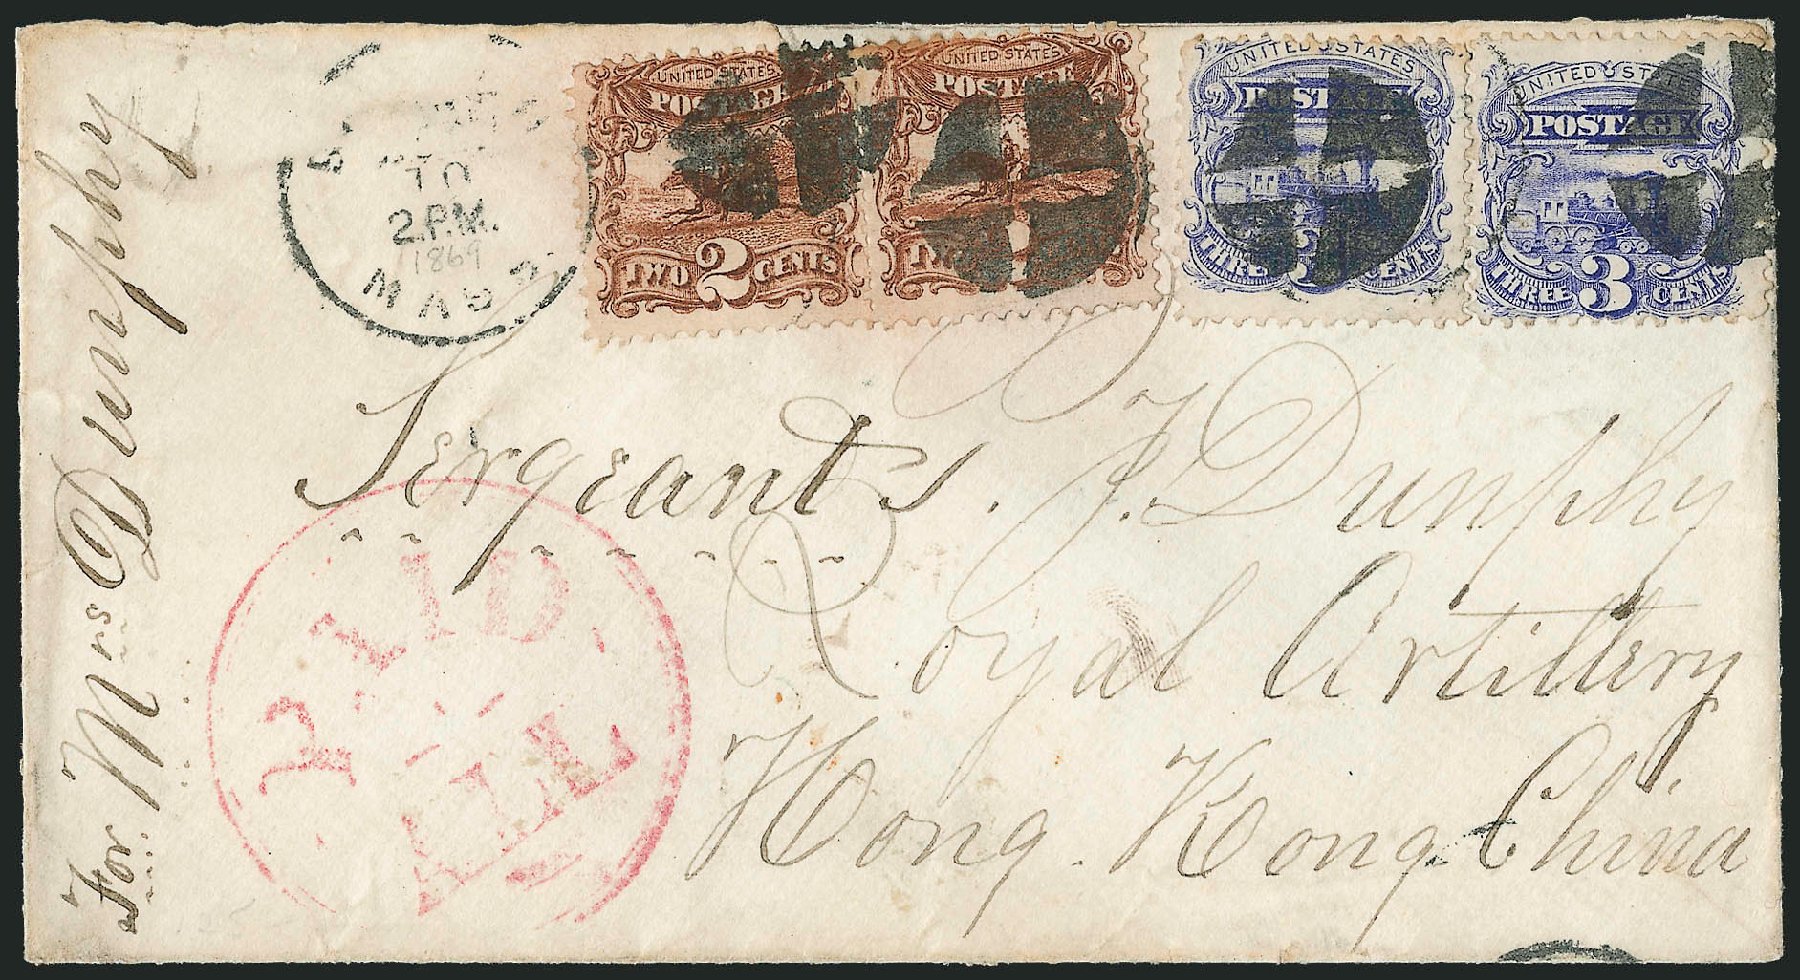 For Mrs Dunphy
10
2.P.M.
1869
MASS
UNITED STATES
POSTAGE
TWO 2 CENTS
UNITED STATES
POSTAGE
TWO
UNITED STATES
POSTAGE
THREE 3 CENTS
UNITED STATES
POSTAGE
THREE 3 CENTS
Sergeants. J. Dunphy
Royal Artillery
Hong. Kong. China
PAID
ALL